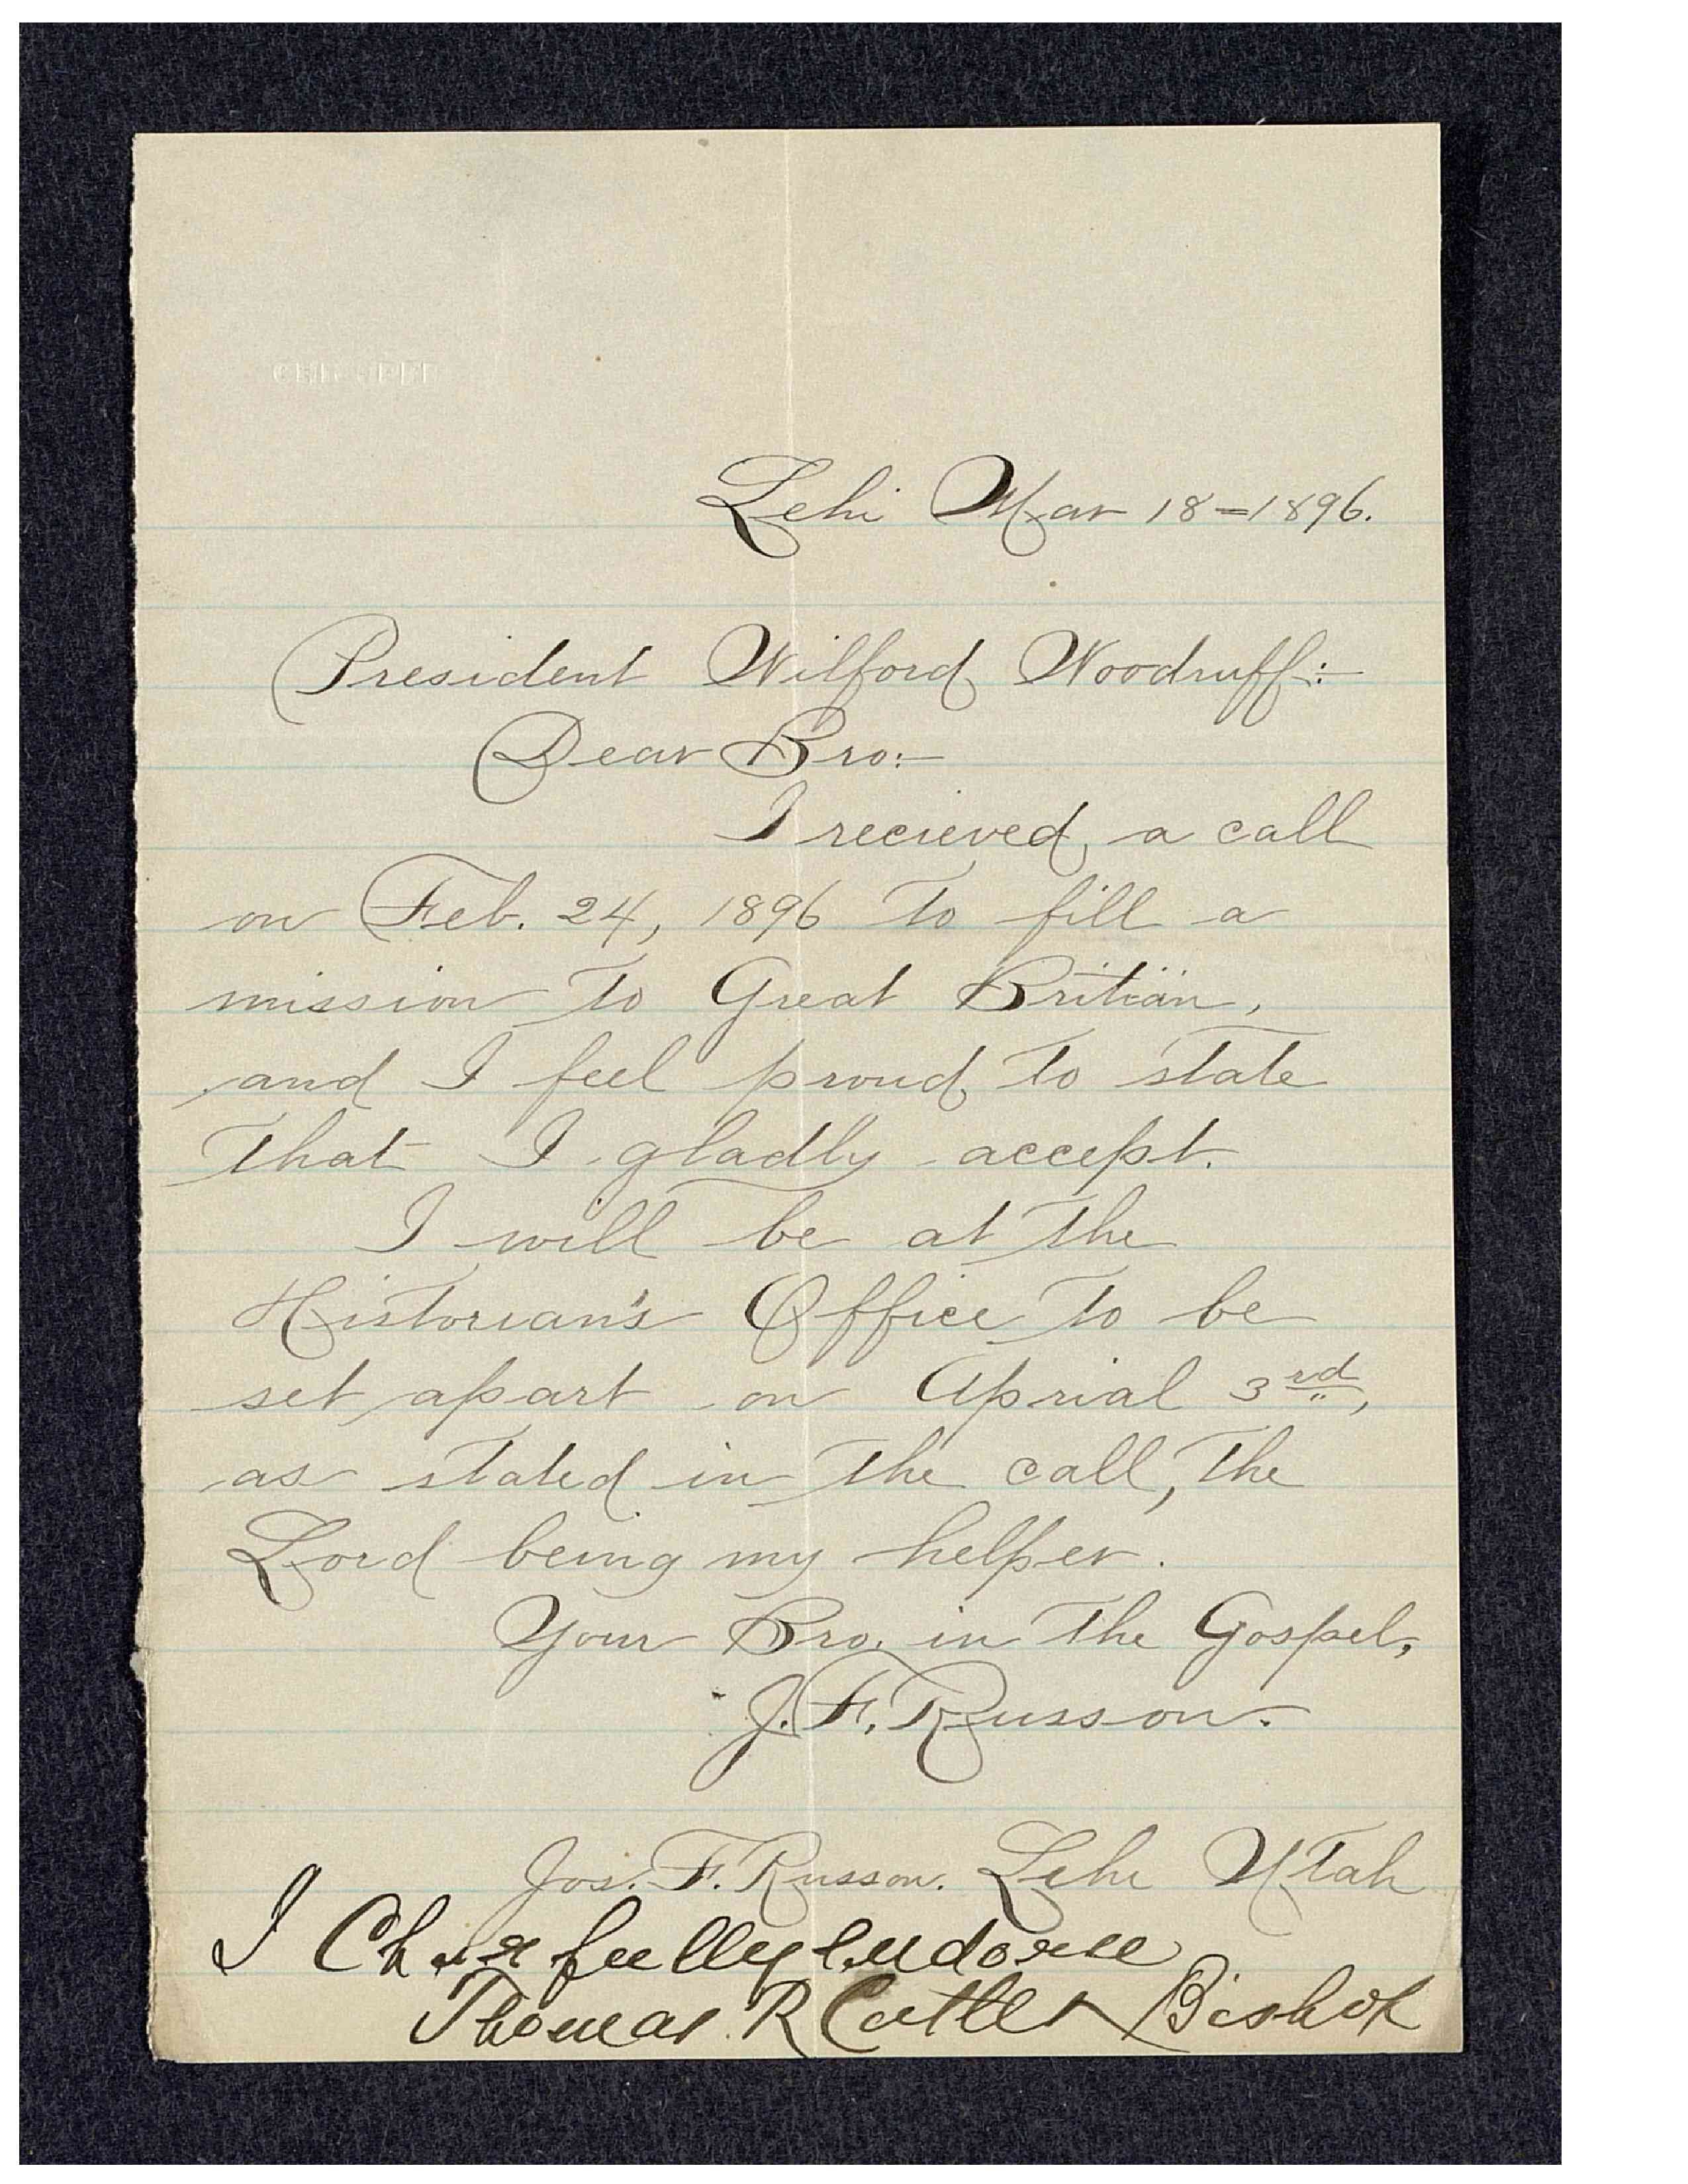 Lehi Mar 18=1896.
President Wilford Woodruff:-
Dear Bro:-
I recieved a call
on Feb. 24, 1896 to fill a
mission to Great Britian,
and I feel proud to state
that I gladly accept.
I will be at the
Historian's Office to be
set apart on Aprial 3rd,
as stated in the call, the
Lord being my helper.
Your Bro. in the Gospel,
J. F. Russon.
Jos. F. Russon. Lehi Utah
I Cheerfully endorse
Thomas R Cutler Bishop